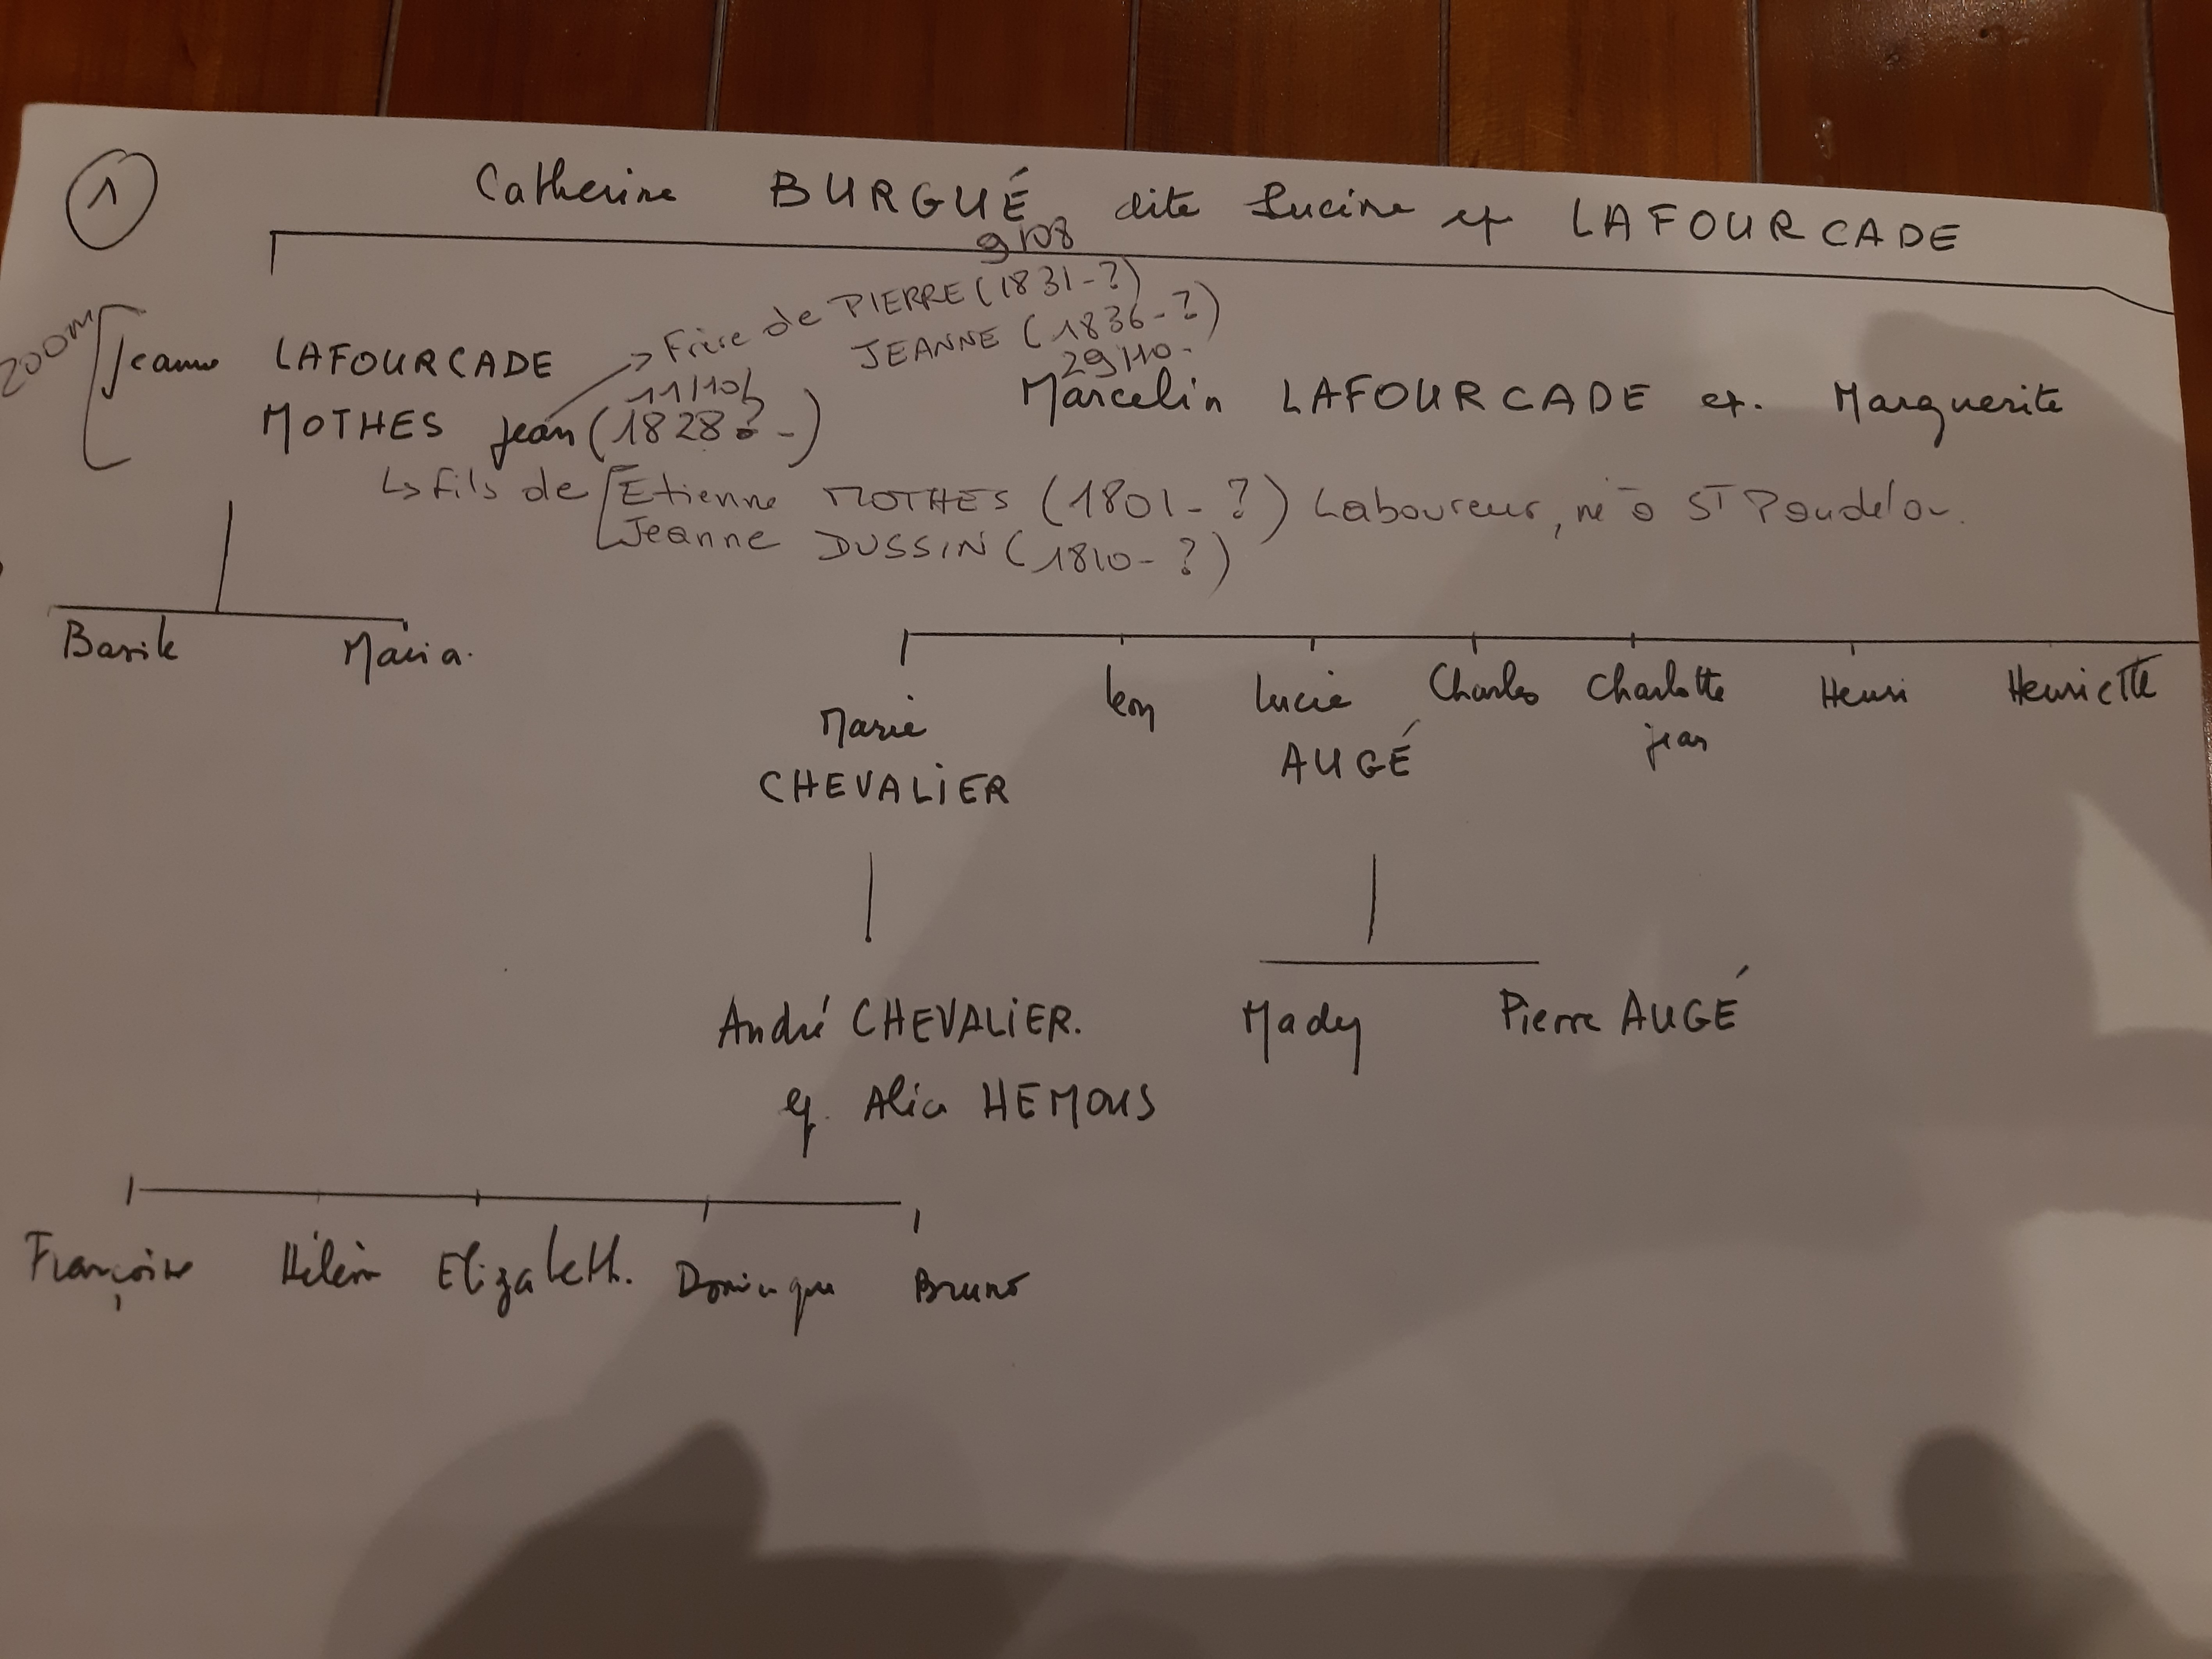 1
Catherine BURGUÉ dite Lucine et LAFOURCADE
9/08
Frère de PIERRE (1831-?)
JEANNE (1836-?)
29/10-
200M
Jeanne LAFOURCADE
11/10/
MOTHES jean (1828? -)
Marcelin LAFOURCADE et. Marguerite
↳ fils de Etienne MOTHES (1801-?) Laboureur, né à ST Pandelon.
Jeanne DUSSIN (1810-?)
Basile Maria.
Marie Léon Lucie Charles Charlotte Henri Henriette
CHEVALIER AUGÉ jean
André CHEVALIER. Mady Pierre AUGÉ
et. Alice HEMONS
Françoise Hélène Elizabeth. Dominique Bruno